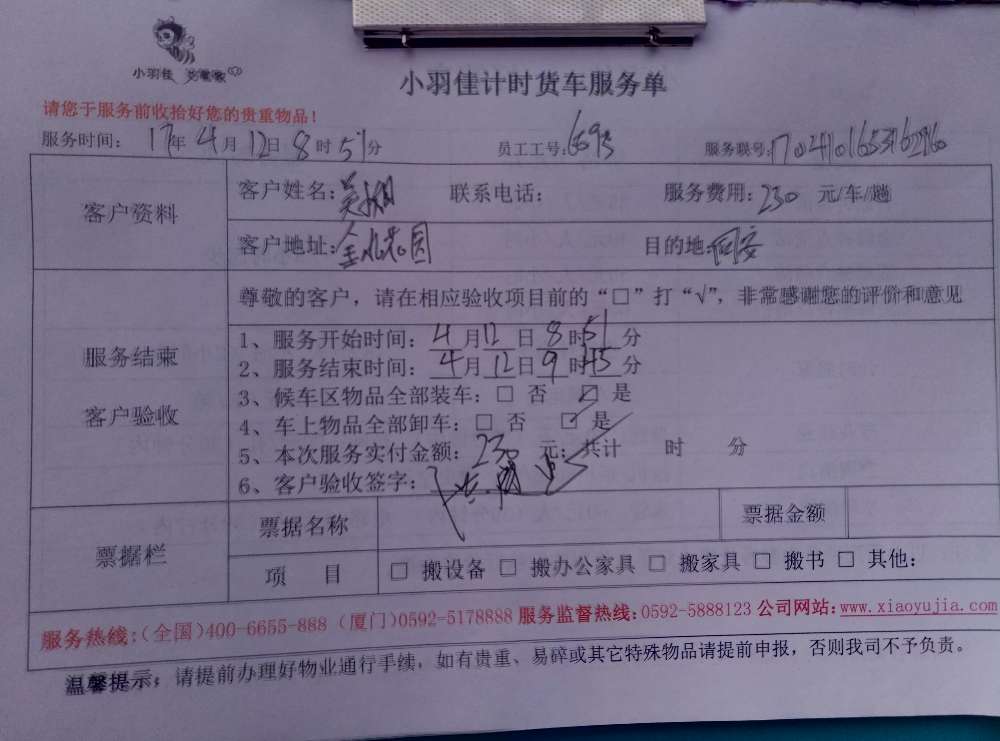 小羽佳
小羽佳计时货车服务单
请您于服务前收拾好您的贵重物品！
服务时间：17年4月12日8时51分 员工工号：659号 服务联号：
客户资料
客户姓名：吴 联系电话： 服务费用：230 元/车/趟
客户地址：金 花园 目的地：同安
尊敬的客户，请在相应验收项目前的“□”打“√”，非常感谢您的评价和意见
服务结束
客户验收
1、服务开始时间：4月12日8时51分
2、服务结束时间：4月12日9时45分
3、候车区物品全部装车：□ 否 ☑ 是
4、车上物品全部卸车：□ 否 ☑ 是
5、本次服务实付金额：230 元；共计 时 分
6、客户验收签字：
票据栏
票据名称 票据金额
项 目 □ 搬设备 □ 搬办公家具 □ 搬家具 □ 搬书 □ 其他：
服务热线：（全国）400-6655-888（厦门）0592-5178888 服务监督热线：0592-5888123 公司网站：www.xiaoyujia.com
温馨提示：请提前办理好物业通行手续，如有贵重、易碎或其它特殊物品请提前申报，否则我司不予负责。